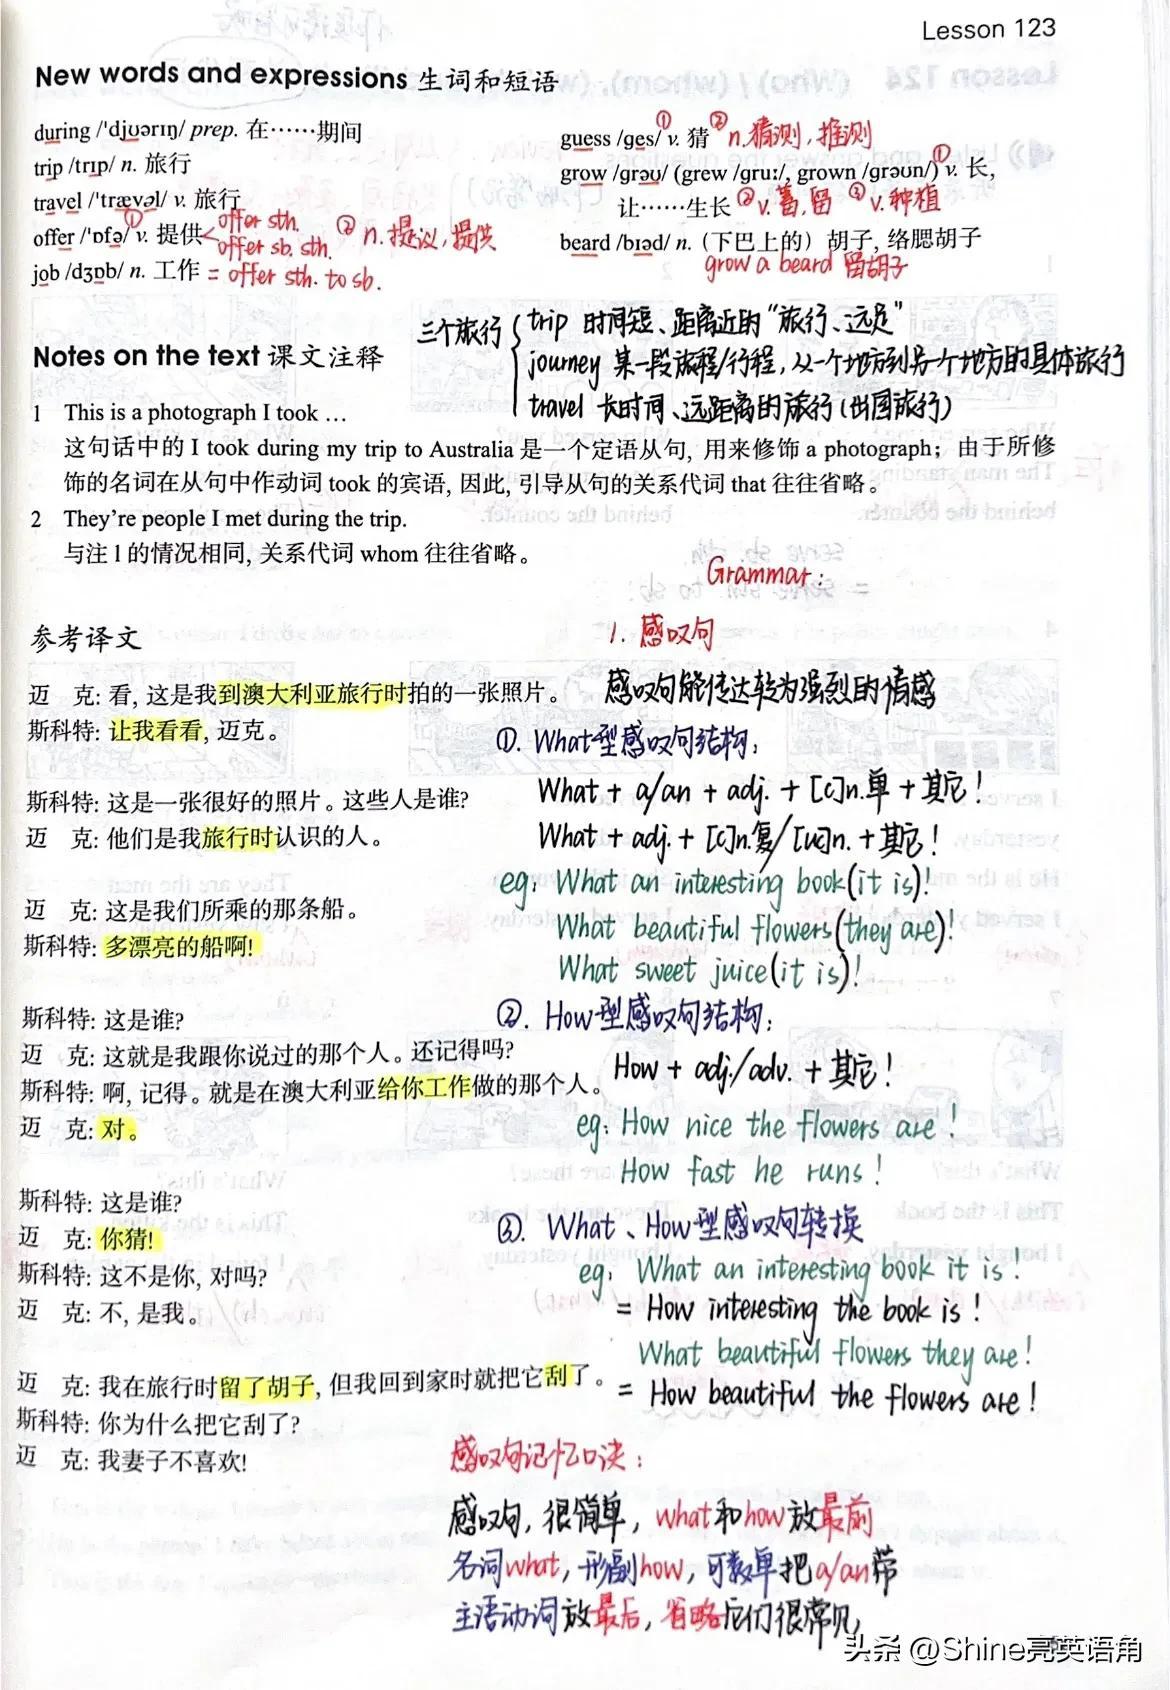 Lesson 123
New words and expressions 生词和短语
during /'djʊərɪŋ/ prep. 在……期间
trip /trɪp/ n. 旅行
travel /'trævəl/ v. 旅行
offer /'ɒfə/ ① v. 提供 offer sth. ② n. 提议, 提供
offer sb. sth.
job /dʒɒb/ n. 工作 = offer sth. to sb.
guess /ges/ ① v. 猜 ② n. 猜测, 推测
grow /grəʊ/ (grew /gruː/, grown /grəʊn/) ① v. 长,
让……生长 ② v. 蓄, 留 ③ v. 种植
beard /bɪəd/ n. (下巴上的) 胡子, 络腮胡子
grow a beard 留胡子
三个旅行 { trip 时间短、距离近的“旅行、远足”
journey 某一段旅程/行程, 从一个地方到另一个地方的具体旅行
travel 长时间、远距离的旅行(出国旅行)
Notes on the text 课文注释
1 This is a photograph I took …
这句话中的 I took during my trip to Australia 是一个定语从句, 用来修饰 a photograph; 由于所修
饰的名词在从句中作动词 took 的宾语, 因此, 引导从句的关系代词 that 往往省略。
2 They're people I met during the trip.
与注 1 的情况相同, 关系代词 whom 往往省略。
参考译文
迈 克: 看, 这是我到澳大利亚旅行时拍的一张照片。
斯科特: 让我看看, 迈克。
斯科特: 这是一张很好的照片。这些人是谁?
迈 克: 他们是我旅行时认识的人。
迈 克: 这是我们所乘的那条船。
斯科特: 多漂亮的船啊!
斯科特: 这是谁?
迈 克: 这就是我跟你说过的那个人。还记得吗?
斯科特: 啊, 记得。就是在澳大利亚给你工作做的那个人。
迈 克: 对。
斯科特: 这是谁?
迈 克: 你猜!
斯科特: 这不是你, 对吗?
迈 克: 不, 是我。
迈 克: 我在旅行时留了胡子, 但我回到家时就把它刮了。
斯科特: 你为什么把它刮了?
迈 克: 我妻子不喜欢!
Grammar:
1. 感叹句
感叹句能传达较为强烈的情感
①. What型感叹句结构:
What + a/an + adj. + [c]n.单 + 其它!
What + adj. + [c]n.复/[u]n. + 其它!
eg: What an interesting book(it is)!
What beautiful flowers(they are)!
What sweet juice(it is)!
②. How型感叹句结构:
How + adj./adv. + 其它!
eg: How nice the flowers are!
How fast he runs!
③. What、How型感叹句转换
eg: What an interesting book it is!
= How interesting the book is!
What beautiful flowers they are!
= How beautiful the flowers are!
感叹句记忆口诀:
感叹句, 很简单, what和how放最前
名词what, 形副how, 可数单把a/an带
主语动词放最后, 省略它们很常见
头条 @Shine亮英语角